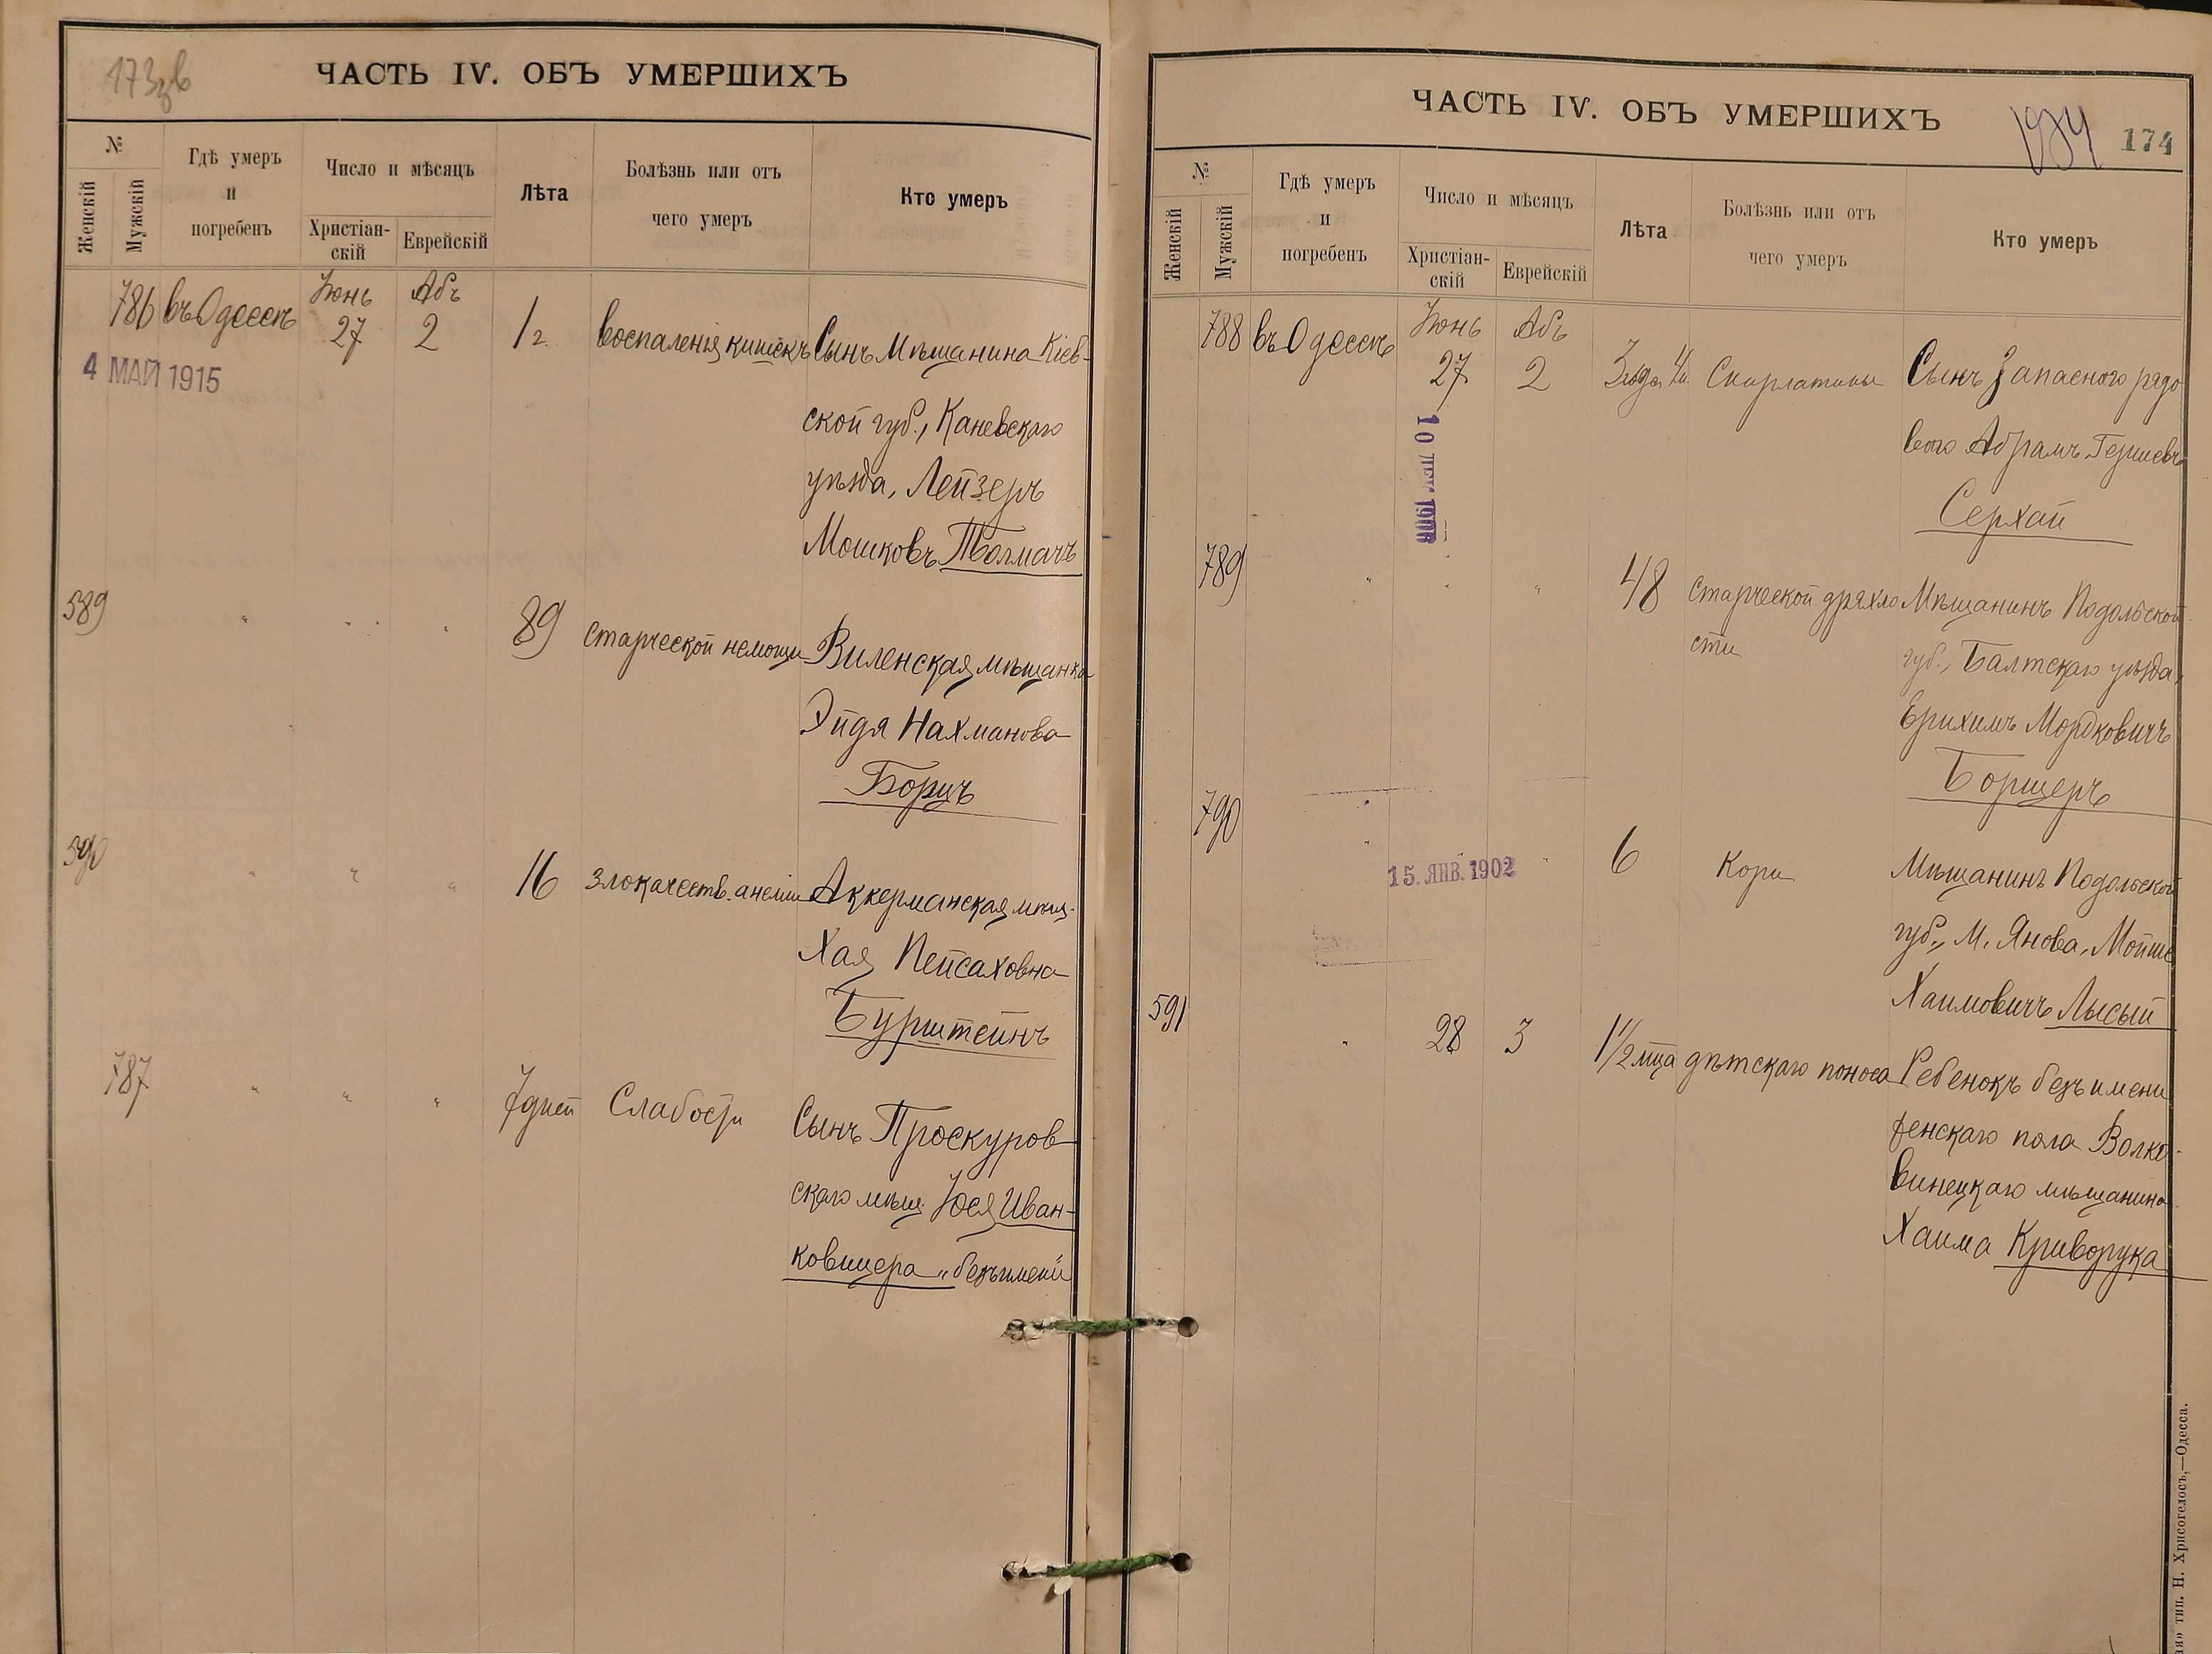 173зв
ЧАСТЬ IV. ОБЪ УМЕРШИХЪ
№
Женскій
Мужскій
Гдѣ умеръ
и
погребенъ
Число и мѣсяцъ
Христіан-
скій
Еврейскій
Лѣта
Болѣзнь или отъ
чего умеръ
Кто умеръ
786 въ Одессѣ Іюнь 27 Абъ 2 1 г. воспаленія кишекъ Сынъ Мѣщанина Кіев-
4 МАЙ 1915
ской губ., Каневскаго
уѣзда, Лейзеръ
Мошковъ Толмачъ
589 " " " 89 старческой немощи Виленская мѣщанка
Эйдя Нахманова
Борщъ
590 " " " 16 злокачеств. анеміи Аккерманская мѣщ.
Хая Пейсаховна
Бурштейнъ
787 " " " 7 дней Слабости Сынъ Проскуров
скаго мѣщ. Іося Иван-
ковицера „безъ имени
ЧАСТЬ IV. ОБЪ УМЕРШИХЪ
174
174
№
Женскій
Мужскій
Гдѣ умеръ
и
погребенъ
Число и мѣсяцъ
Христіан-
скій
Еврейскій
Лѣта
Болѣзнь или отъ
чего умеръ
Кто умеръ
788 въ Одессѣ Іюнь 27 Абъ 2 3 года 4 м. Скарлатины Сынъ Запасного рядо
вого Абрамъ Гершевъ
Серхай
1906
789 " " " 48 старческой дряхло Мѣщанинъ Подольской
сти губ., Балтскаго уѣзда,
Ерихимъ Мордковичъ
Борщеръ
790 " " 6 Кори Мѣщанинъ Подольской
15. ЯНВ. 1902
губ., М. Янова, Мойше
Хаимовичъ Лысый
591 " 28 3 1 1/2 мца дѣтскаго поноса Ребенокъ безъ имени
женскаго пола Волко-
винецкаго мѣщанина
Хаима Криворука
тип. Н. Хрисогелосъ,—Одесса.